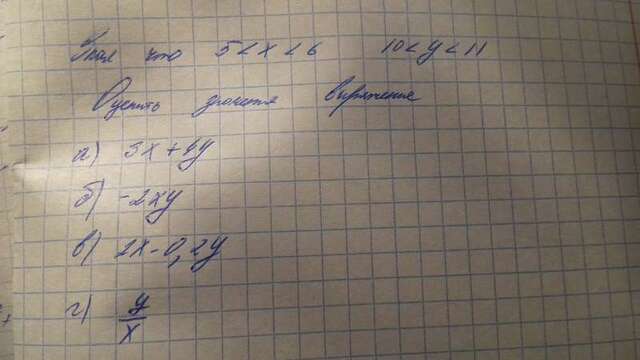 Зная что 5 < x < 6 10 < y < 11
Оценить значения выражения
а) 3x + 4y
б) -2xy
в) 2x - 0,2y
г) y/x